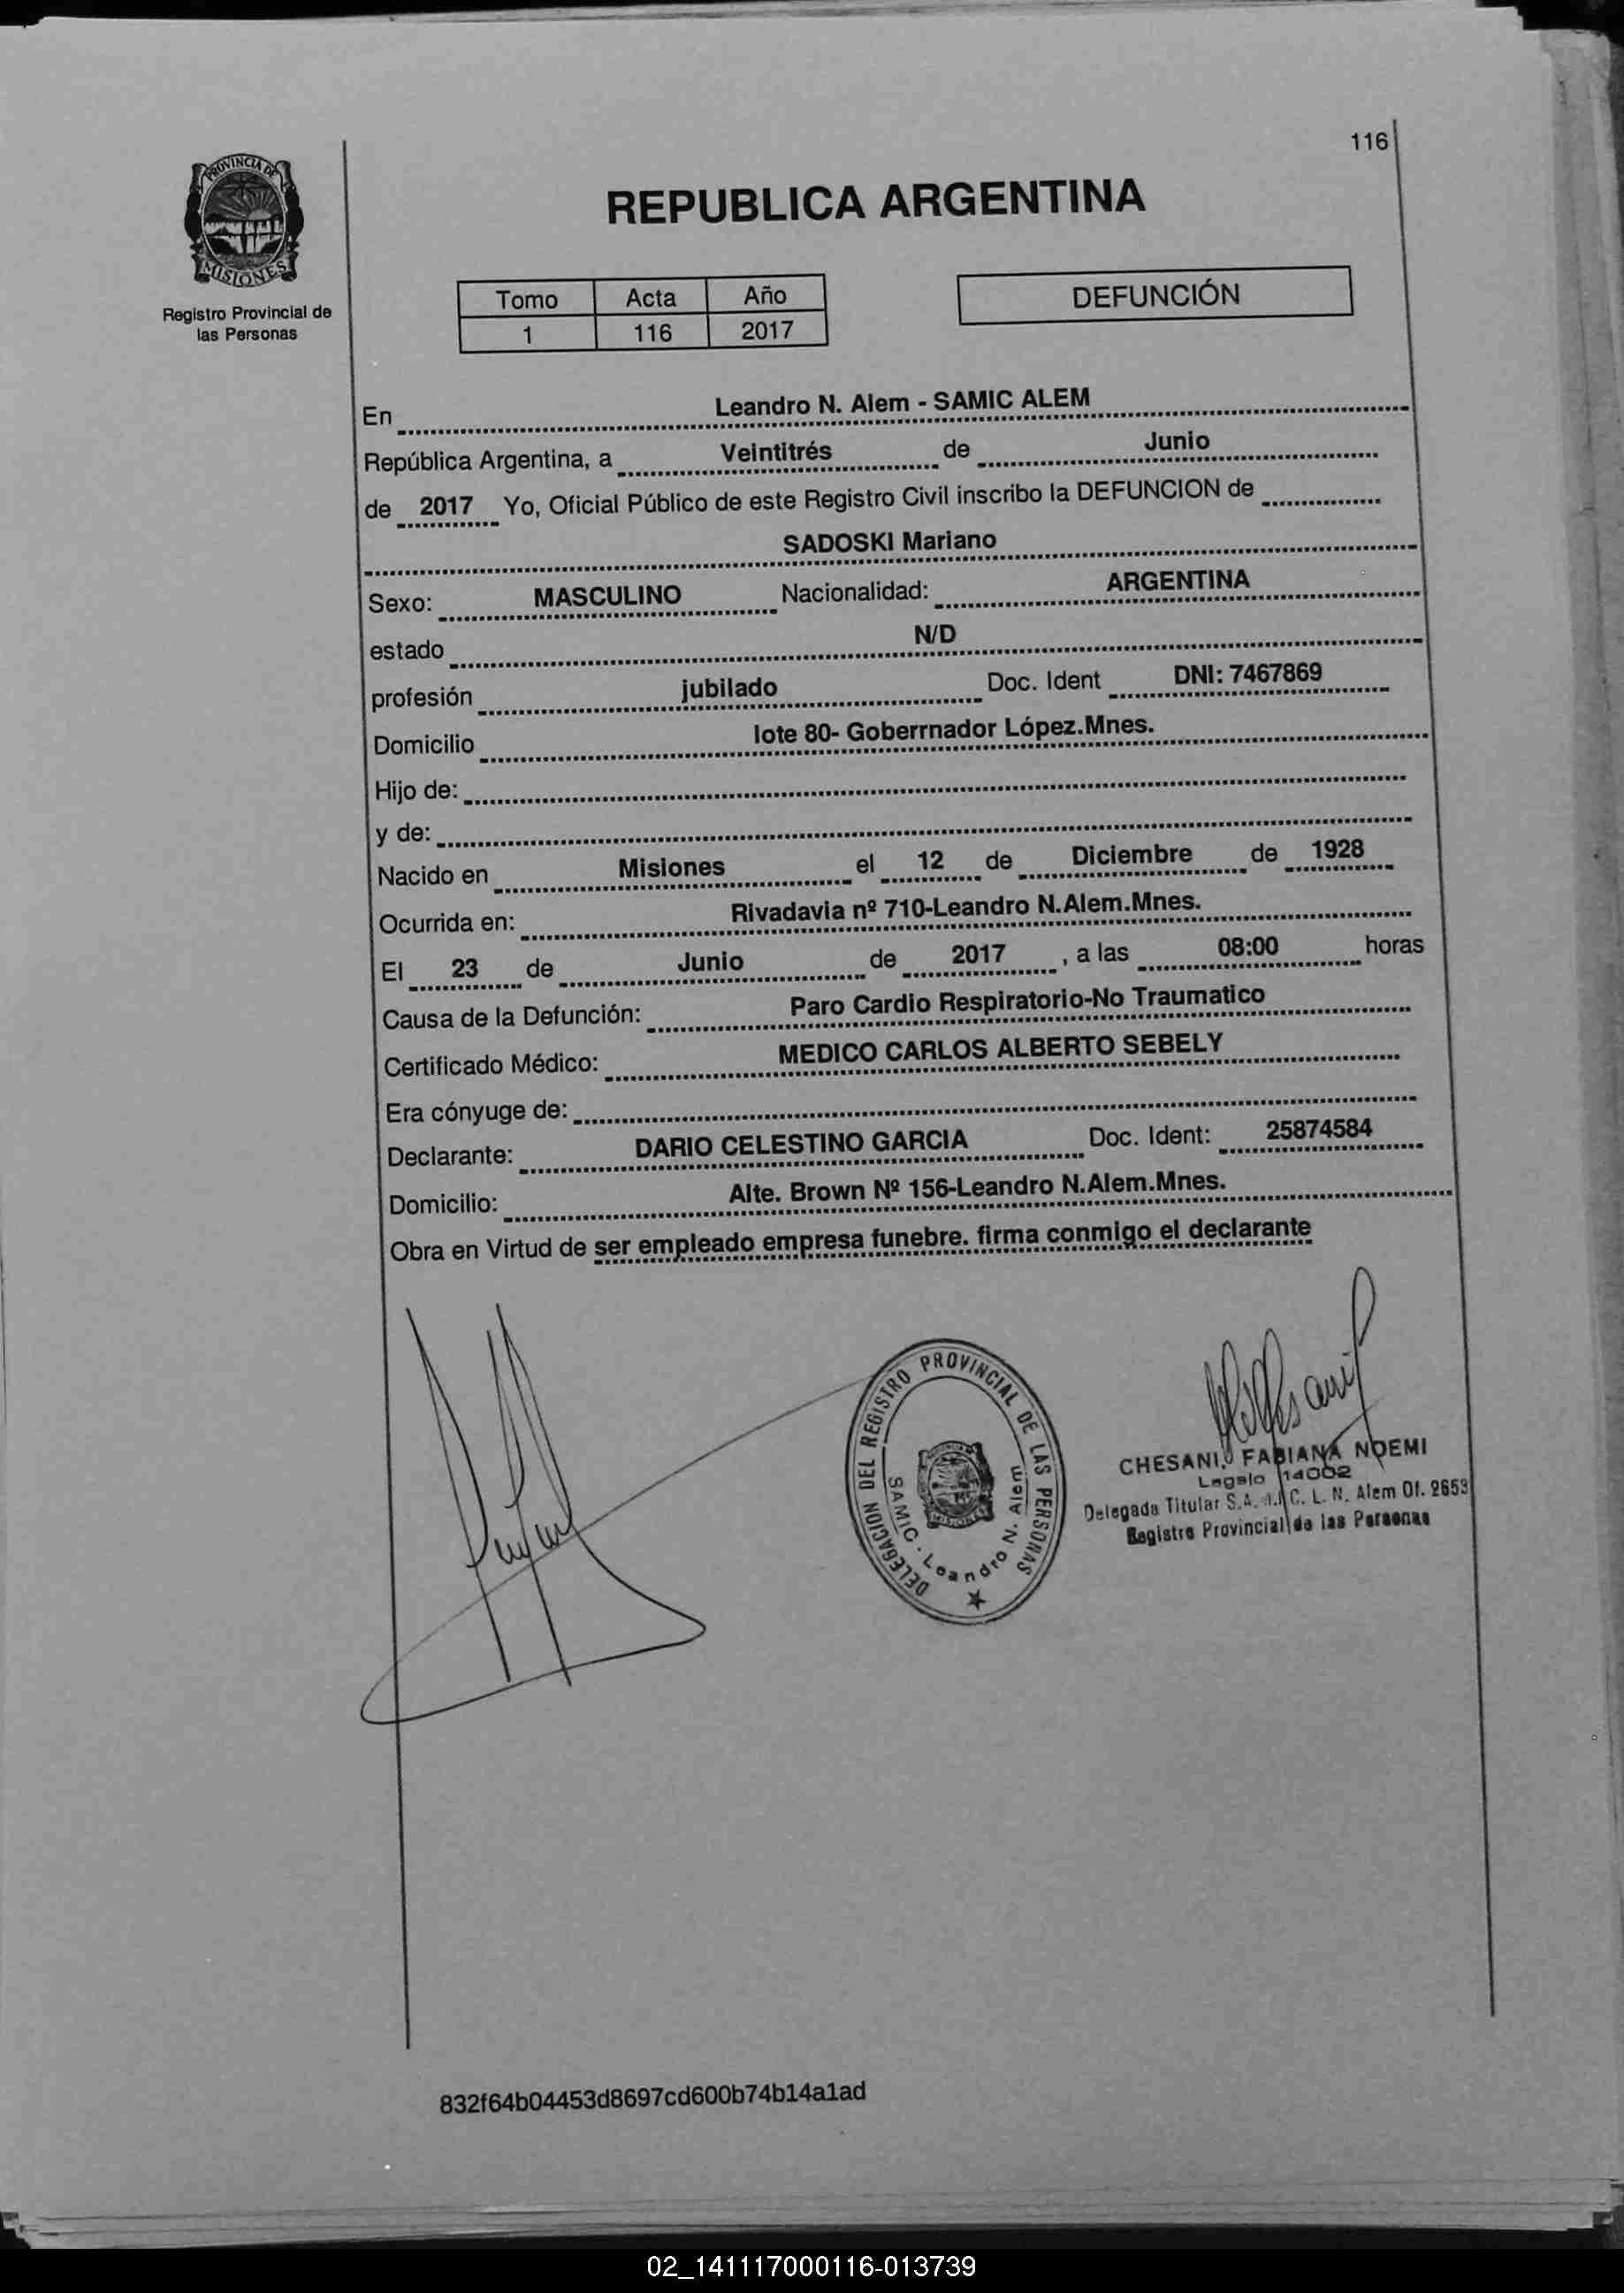 116
PROVINCIA DE
MISIONES
Registro Provincial de
las Personas
REPUBLICA ARGENTINA
Tomo Acta Año
1 116 2017
DEFUNCIÓN
En Leandro N. Alem - SAMIC ALEM
República Argentina, a Veintitrés de Junio
de 2017 Yo, Oficial Público de este Registro Civil inscribo la DEFUNCION de
SADOSKI Mariano
Sexo: MASCULINO Nacionalidad: ARGENTINA
estado N/D
profesión jubilado Doc. Ident DNI: 7467869
Domicilio lote 80- Goberrnador López.Mnes.
Hijo de:
y de:
Nacido en Misiones el 12 de Diciembre de 1928
Ocurrida en: Rivadavia nº 710-Leandro N.Alem.Mnes.
El 23 de Junio de 2017 , a las 08:00 horas
Causa de la Defunción: Paro Cardio Respiratorio-No Traumatico
Certificado Médico: MEDICO CARLOS ALBERTO SEBELY
Era cónyuge de:
Declarante: DARIO CELESTINO GARCIA Doc. Ident: 25874584
Domicilio: Alte. Brown Nº 156-Leandro N.Alem.Mnes.
Obra en Virtud de ser empleado empresa funebre. firma conmigo el declarante
DELEGACION DEL REGISTRO PROVINCIAL DE LAS PERSONAS
SAMIC - Leandro N. Alem
CHESANI, FABIANA NOEMI
Legajo 14002
Delegada Titular S.A.M.I.C. L. N. Alem Of. 2653
Registro Provincial de las Personas
832f64b04453d8697cd600b74b14a1ad
02_141117000116-013739